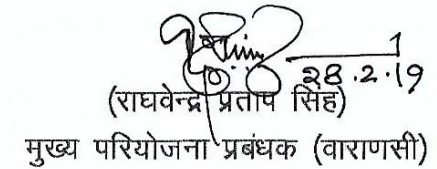 28.2.19
(राघवेन्द्र प्रताप सिंह)
मुख्य परियोजना प्रबंधक (वाराणसी)